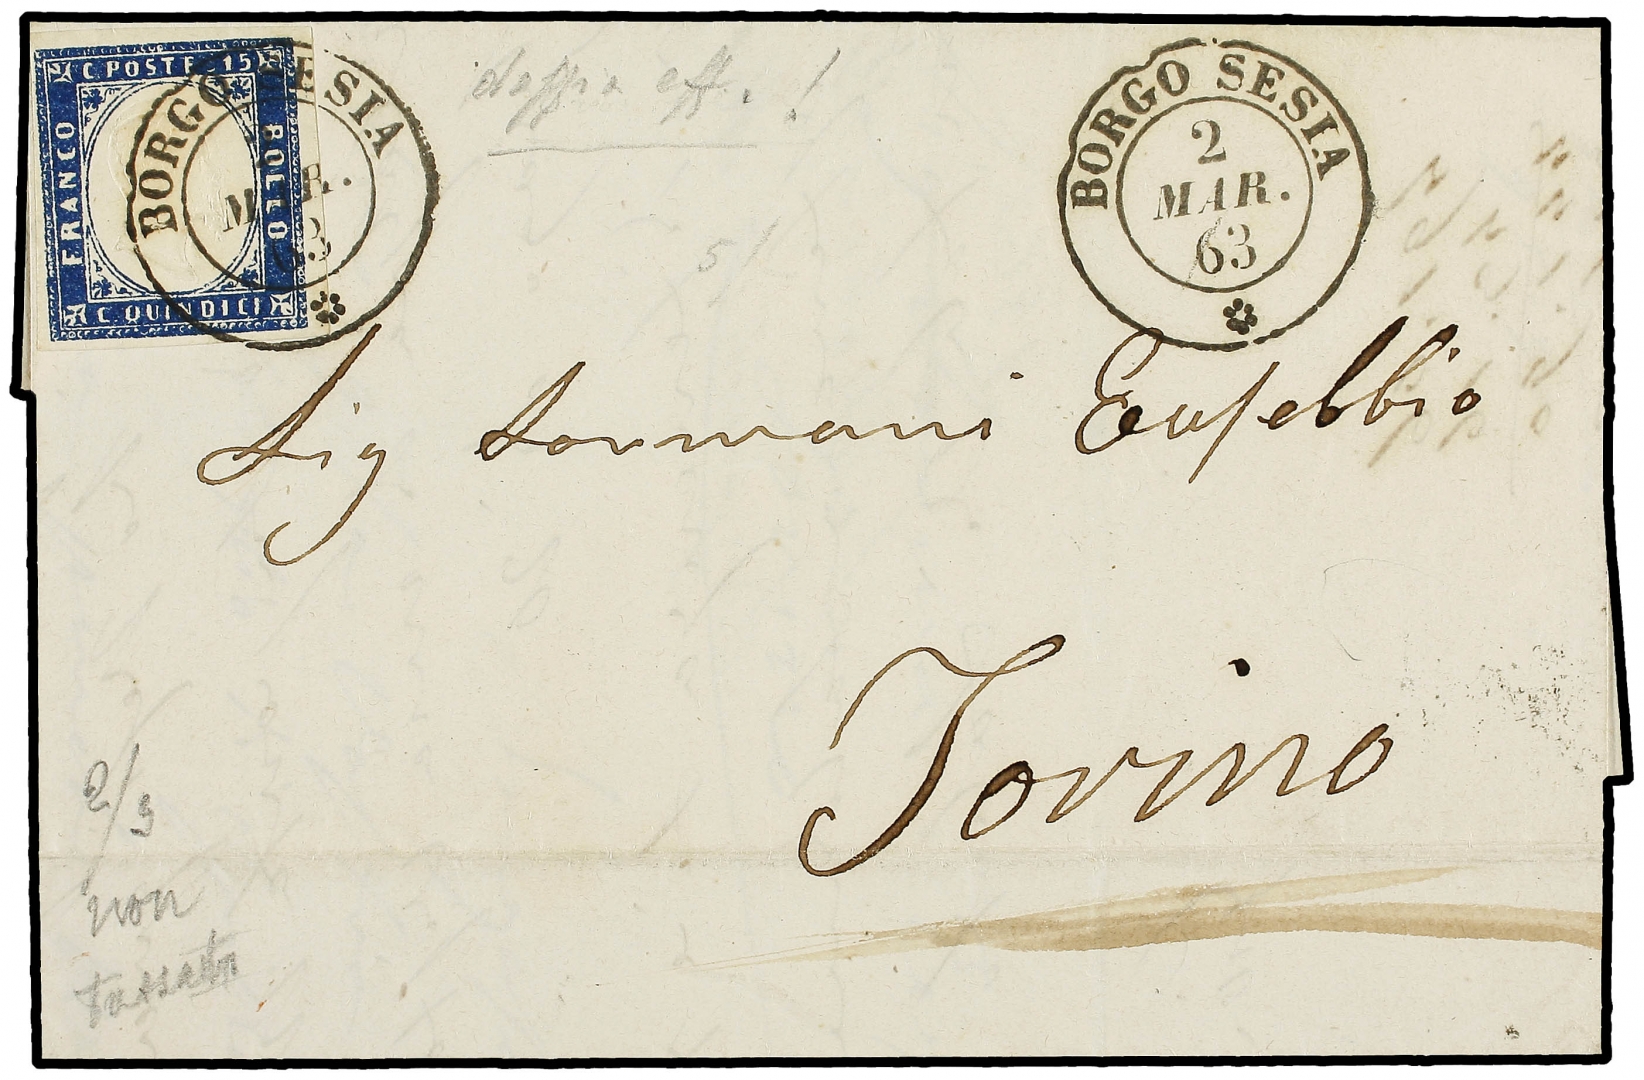 C. POSTE 15
FRANCO
BOLLO
C. QUINDICI
BORGO SESIA
MAR.
63
doppia eff. !
5/
BORGO SESIA
2
MAR.
63
Sig Sormani Eusebbio
Torino
2/3
non
tassata